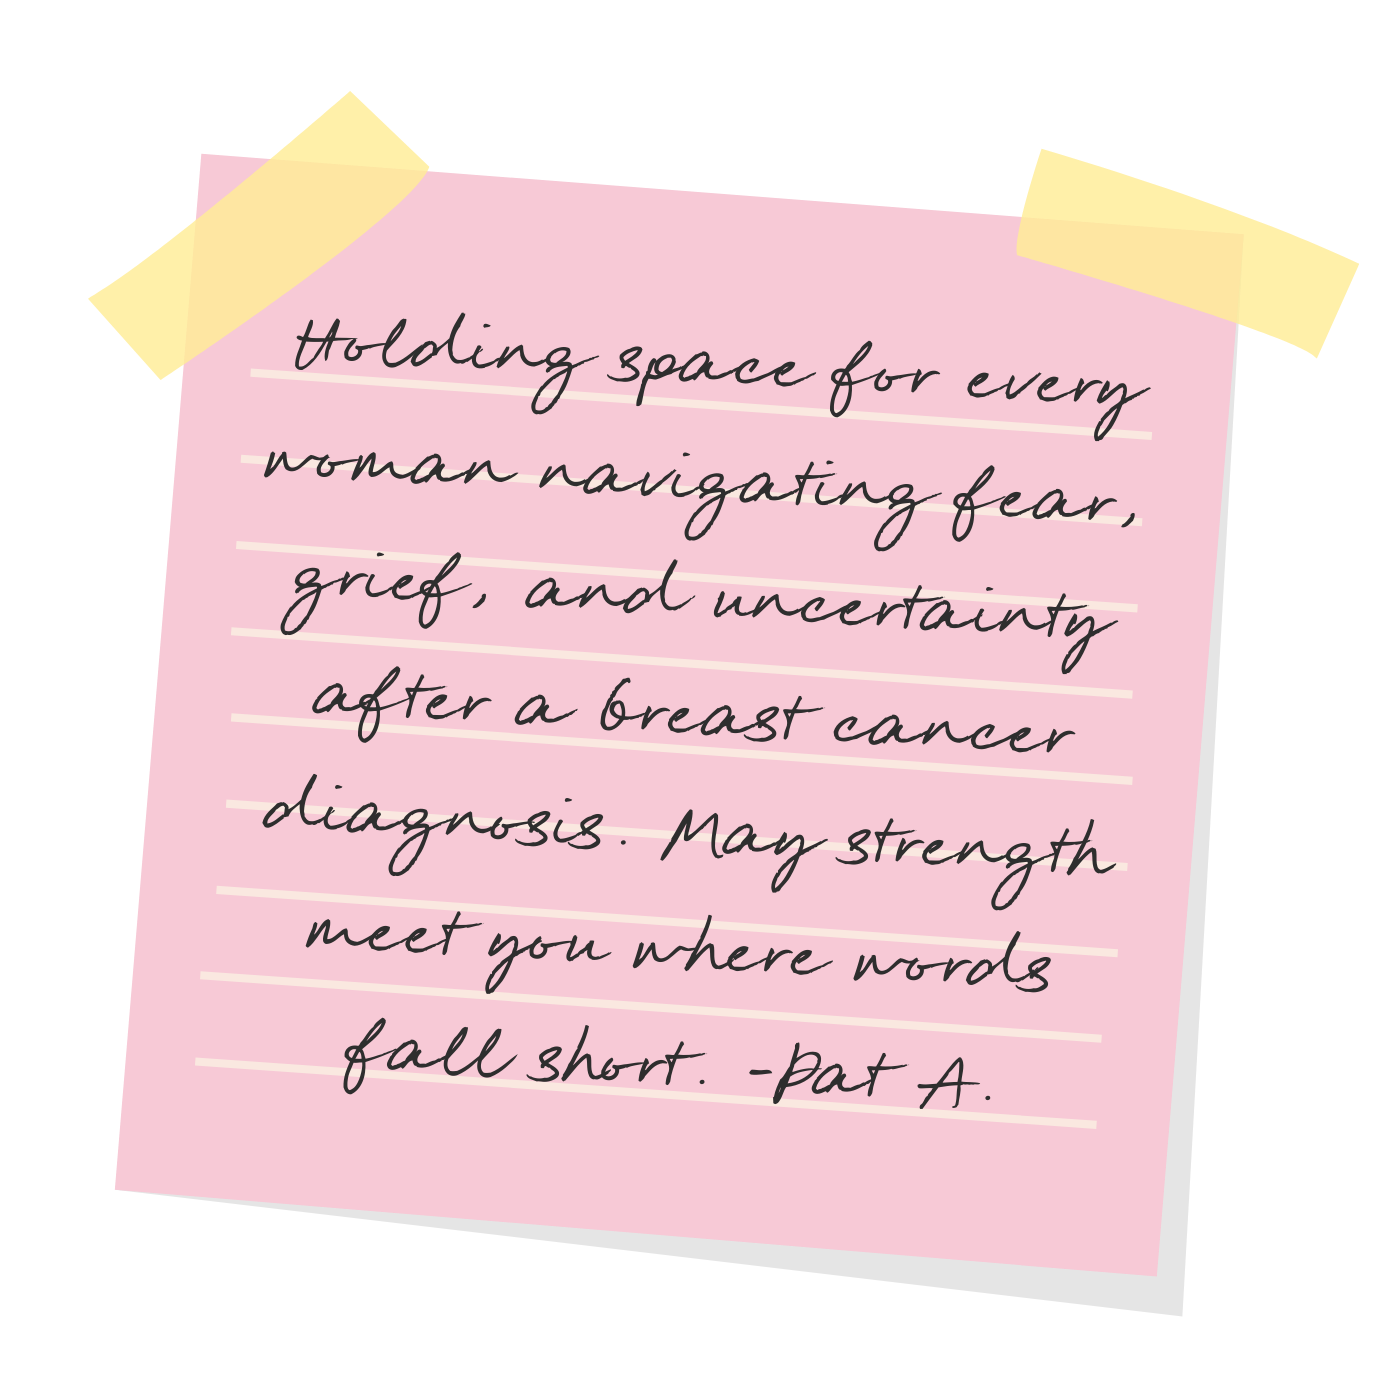 Holding space for every
woman navigating fear,
grief, and uncertainty
after a breast cancer
diagnosis. May strength
meet you where words
fall short. -Pat A.